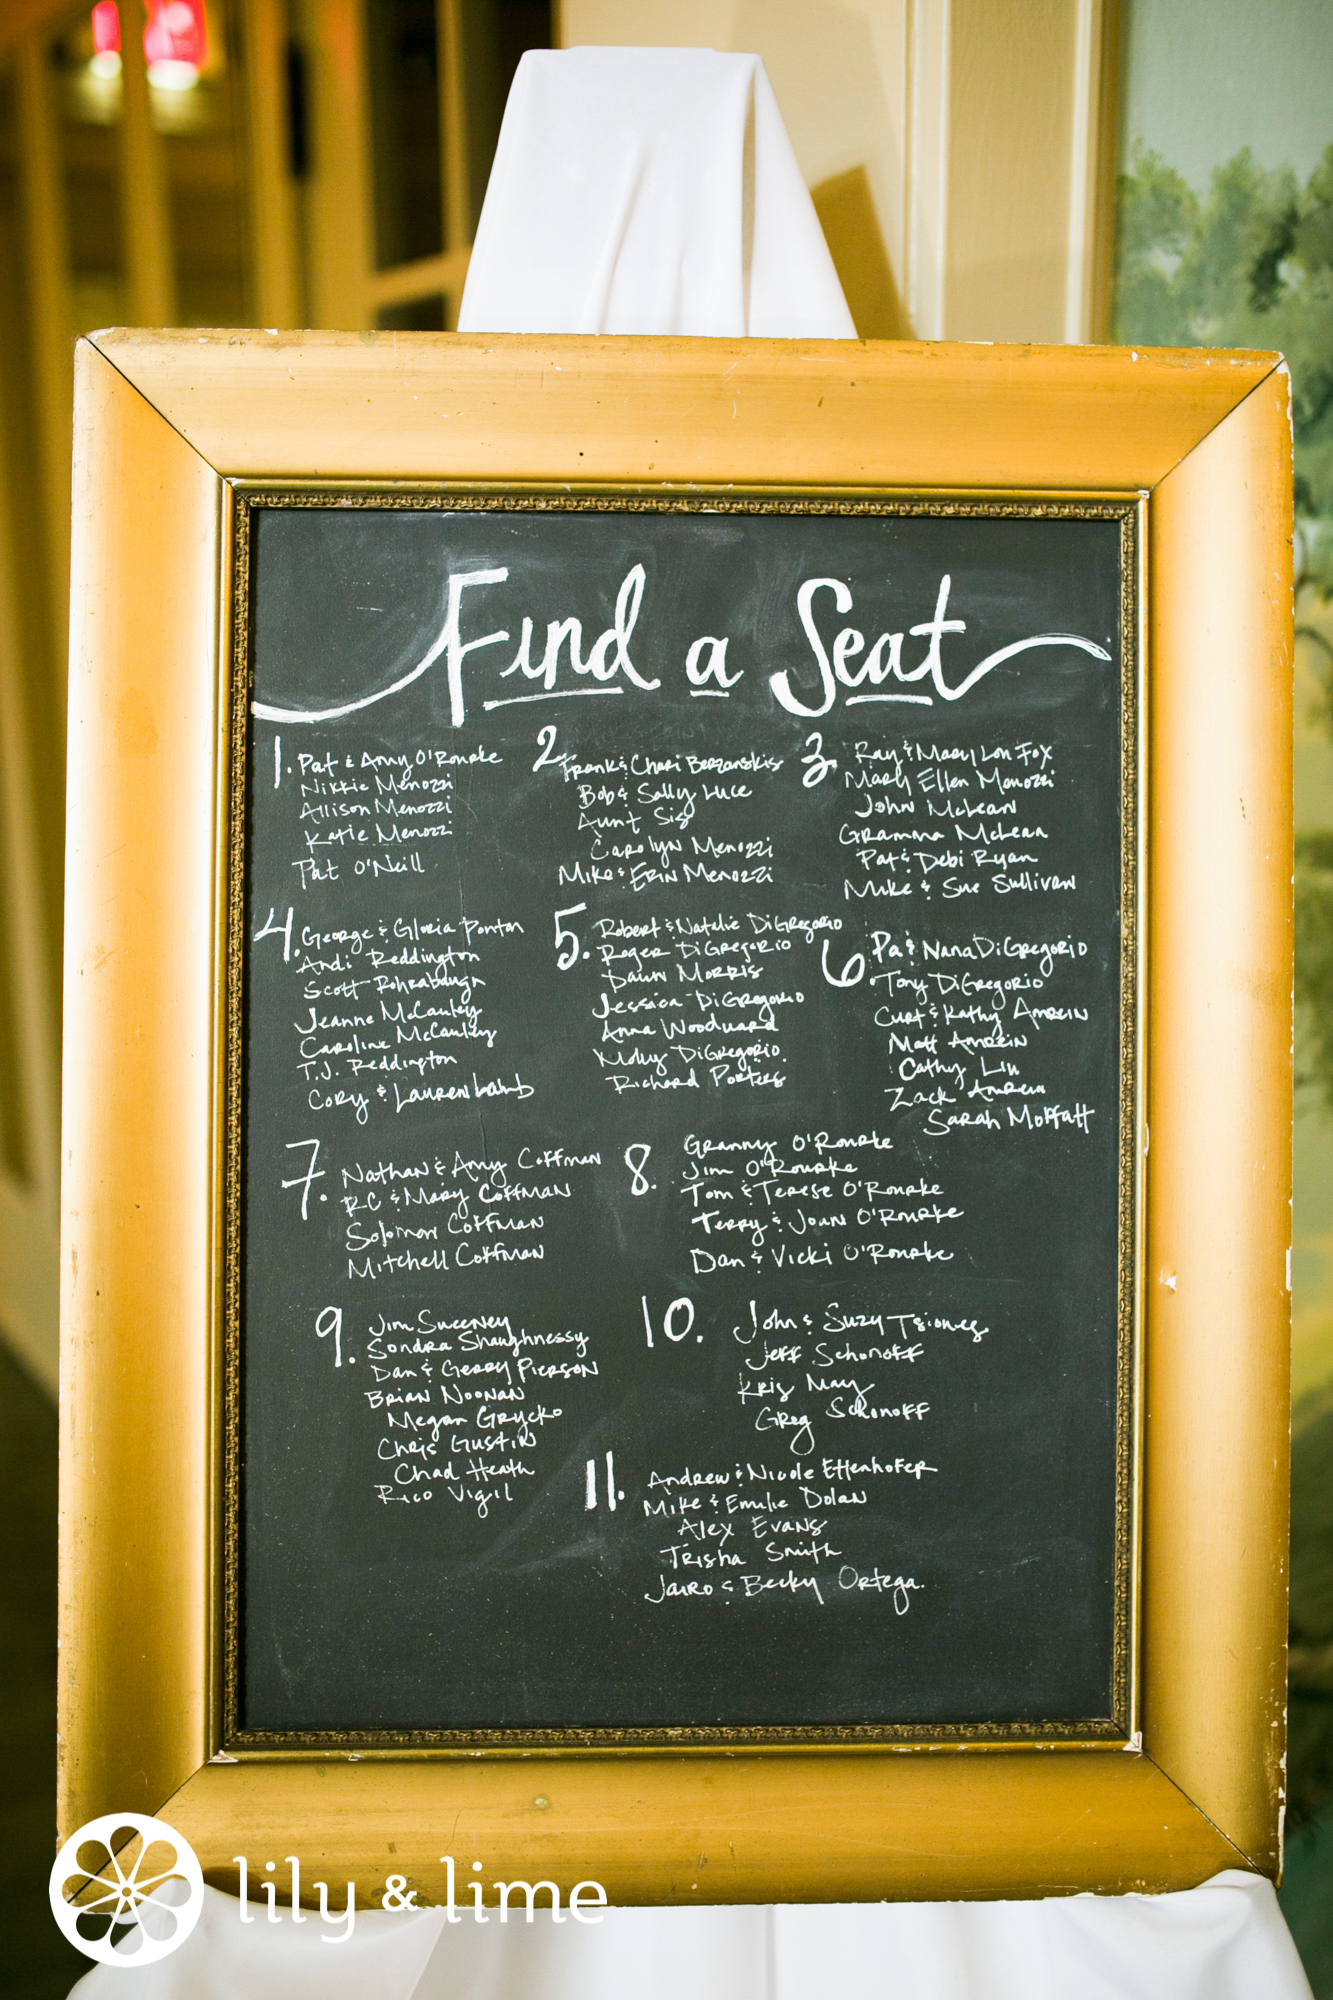 Find a Seat
1. Pat & Amy O'Rourke
Nikkie Menozzi
Allison Menozzi
Katie Menozzi
Pat O'Neill
2. Frank & Chari Berzanskis
Bob & Sally Luce
Aunt Sis
Carolyn Menozzi
Mike & Erin Menozzi
3. Ray & Mary Lou Fox
Mary Ellen Menozzi
John McLean
Gramma McLean
Pat & Debi Ryan
Mike & Sue Sullivan
4. George & Gloria Ponton
Andi Reddington
Scott Rohrabaugh
Jeanne McCauley
Caroline McCauley
T.J. Reddington
Cory & Lauren Lamb
5. Robert & Natalie DiGregorio
Roger DiGregorio
Dawn Morris
Jessica DiGregorio
Anna Woodward
Molly DiGregorio
Richard Porters
6. Pa & Nana DiGregorio
Tony DiGregorio
Curt & Kathy Amrein
Matt Amrein
Cathy Liu
Zack Amrein
Sarah Moffatt
7. Nathan & Amy Coffman
RC & Mary Coffman
Solomon Coffman
Mitchell Coffman
8. Granny O'Rourke
Jim O'Rourke
Tom & Terese O'Rourke
Terry & Joan O'Rourke
Dan & Vicki O'Rourke
9. Jim Sweeney
Sondra Shaughnessy
Dan & Gerry Pierson
Brian Noonan
Megan Grycko
Chris Gustin
Chad Heath
Rico Vigil
10. John & Suzy Tsiones
Jeff Schonoff
Kris May
Greg Schonoff
11. Andrew & Nicole Ettenhofer
Mike & Emilie Dolan
Alex Evans
Trisha Smith
Jairo & Becky Ortega.
lily & lime